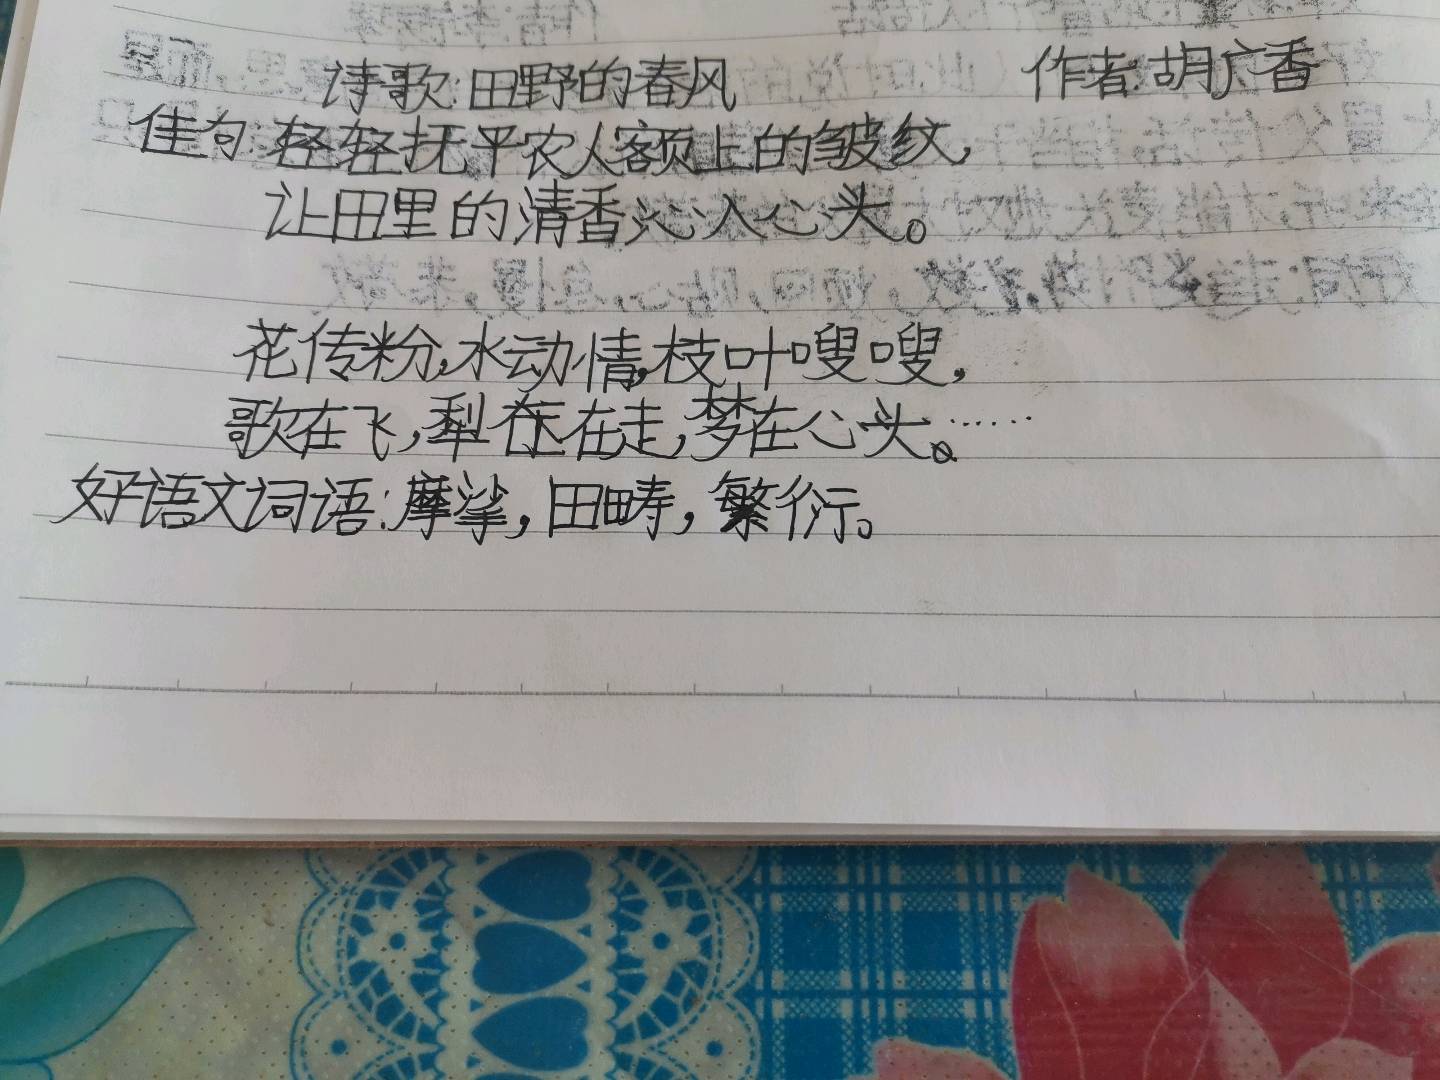 诗歌:田野的春风 作者:胡广香
佳句:轻轻抚平农人额上的皱纹,
让田里的清香沁入心头。
花传粉,水动情,枝叶嗖嗖,
歌在飞,犁在走,梦在心头。……
好语文词语:摩挲,田畴,繁衍。